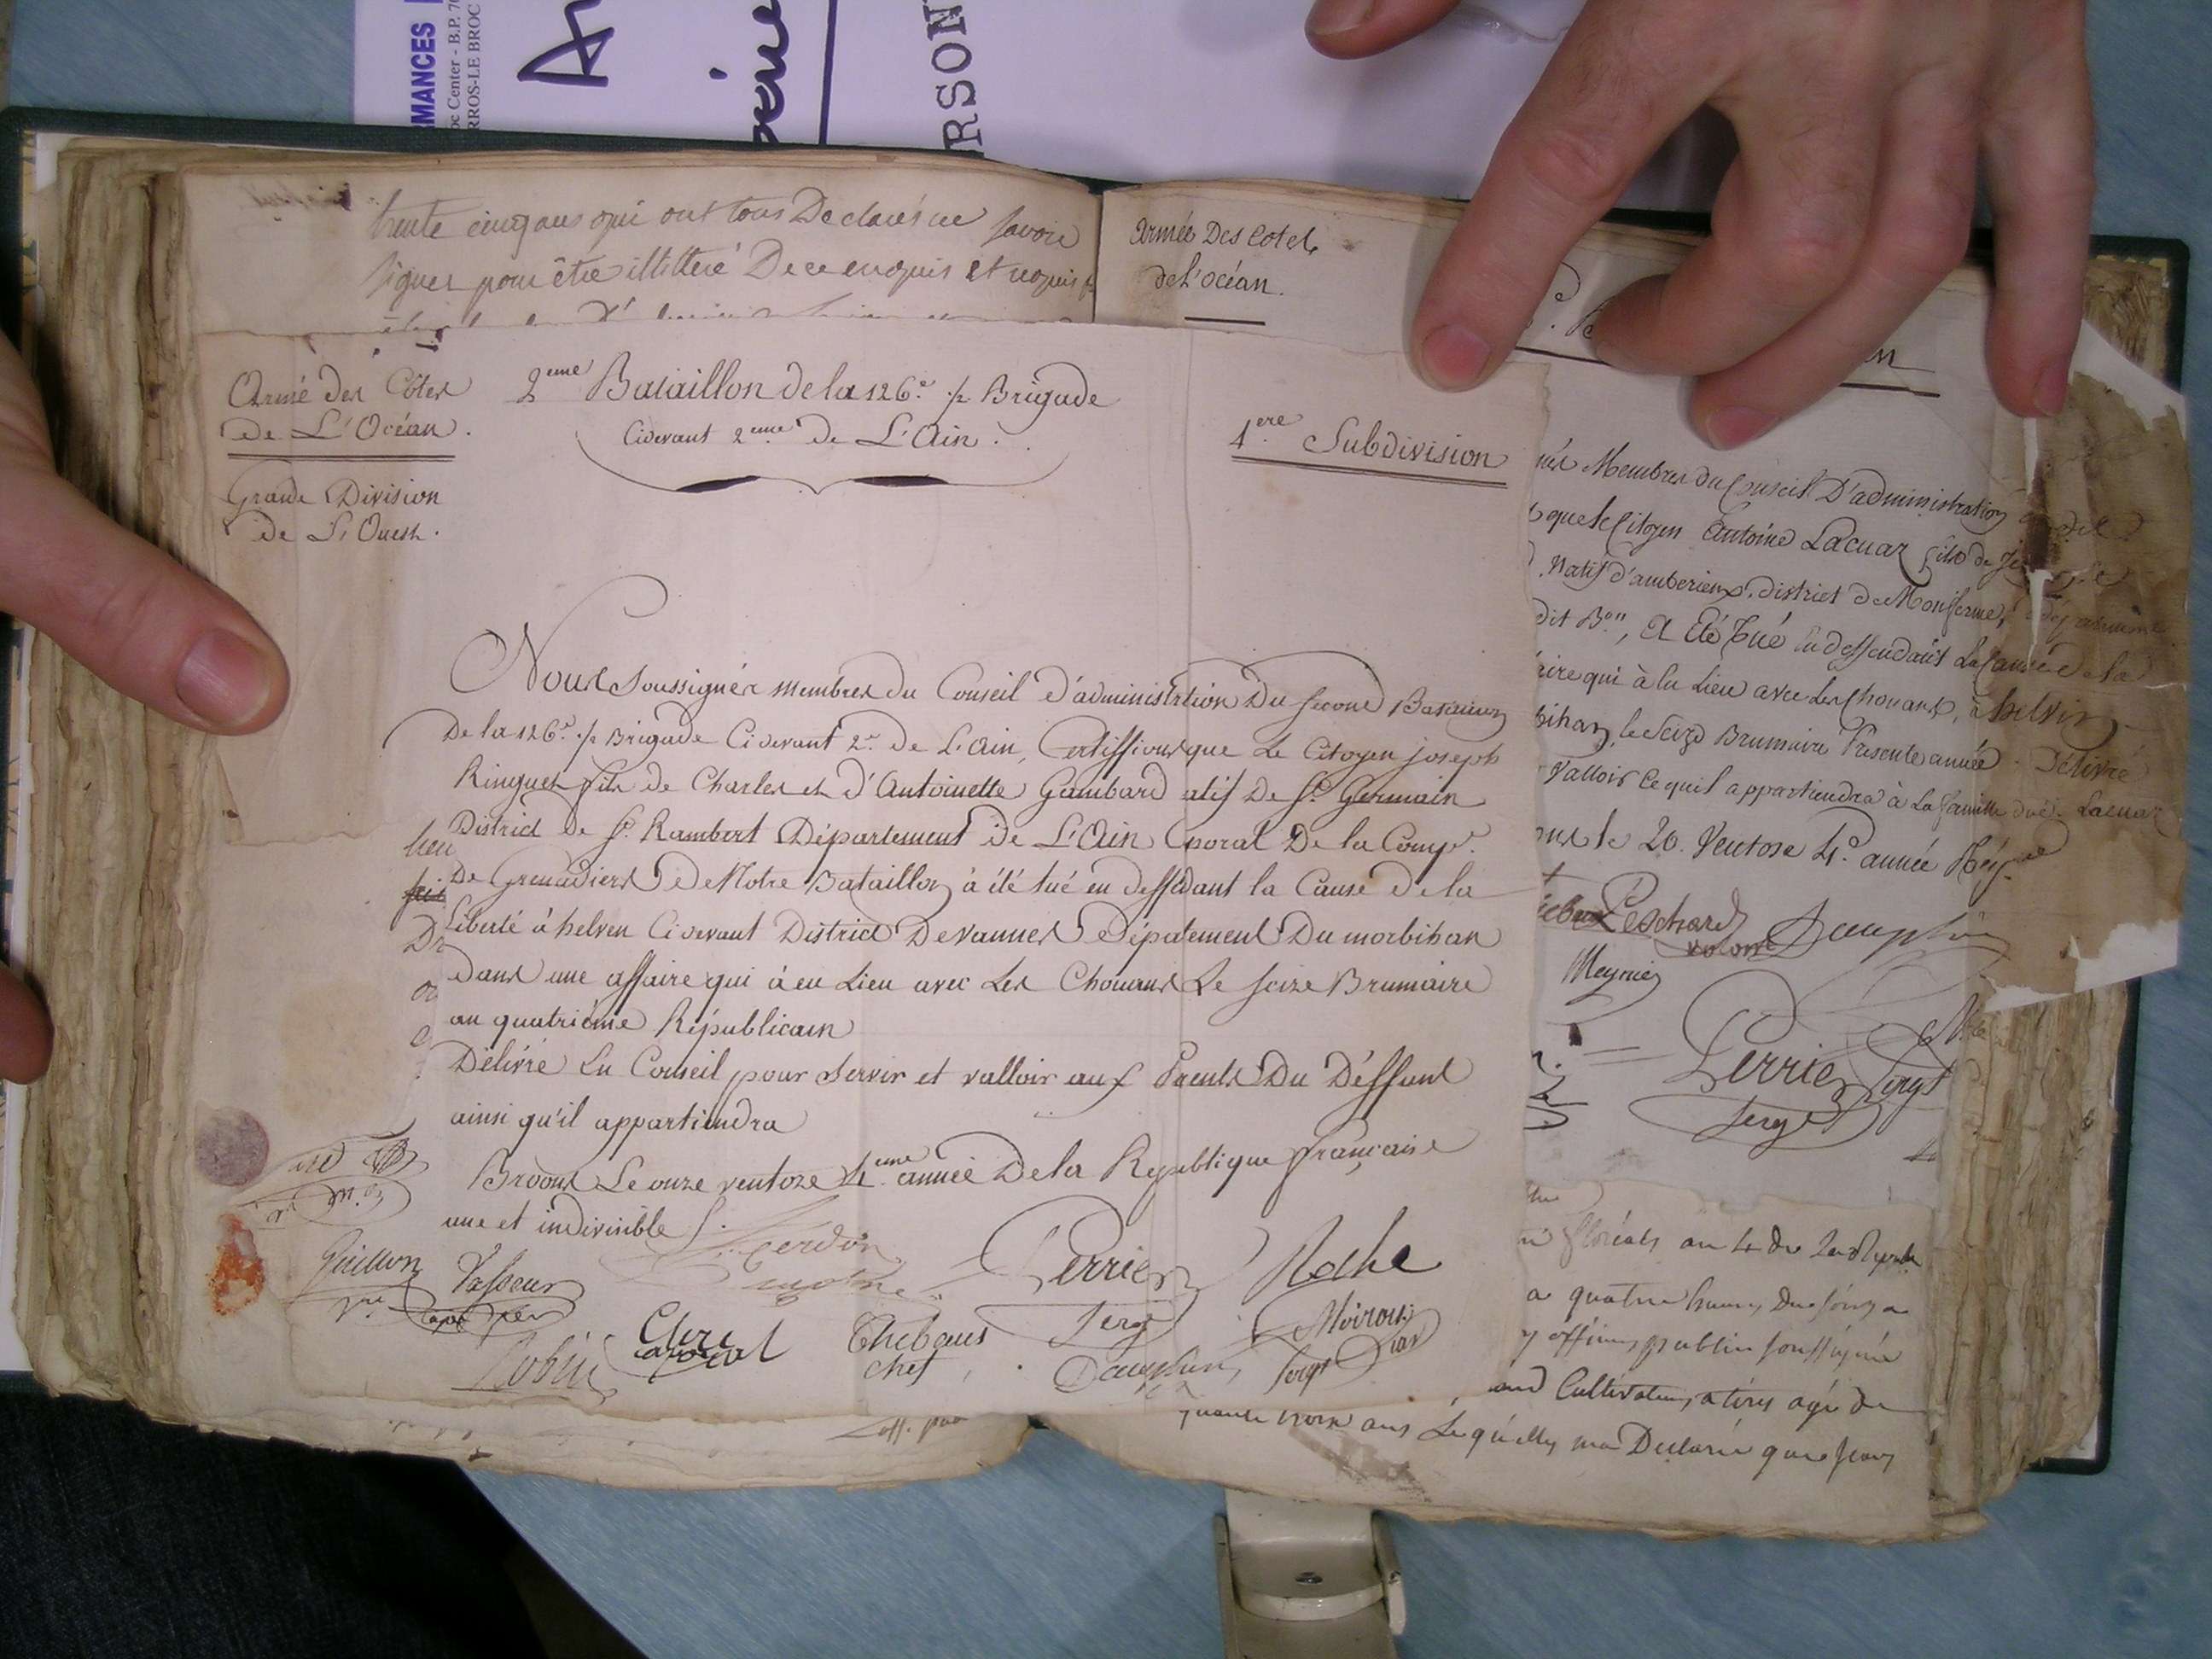 MANCES
oc Center - B.P. 70
RROS-LE BROC
RSON
trente cinq ans qui ont tous Declarés ne savoir
signer pour être illitteré De ce enquis et requis
Armée Des Cotes
de l'océan.
Armé des Côtes
de L'Océan.
Grande Division
de L'Ouest.
2eme Bataillon de la 126e ½ Brigade
Cidevant 2eme de L'Ain.
1ere Subdivision
Nous soussignés membres du Conseil d'administration Du second Bataillon
De la 126e ½ Brigade Cidevant 2e de L'Ain, Certiffions que Le Citoyen joseph
Ringuet fils de Charles et d'Antoinette Gambard atif De St Germain
District De St Rambert Département de L'Ain Cporal De la Compe
De Grenadiers De Notre Bataillon à été tué en deffedant la Cause de la
Liberté à helven Cidevant District De vannes Dépatement Du morbihan
dans une affaire qui à eu Lieu avec Les Chouans Le seize Brumaire
an quatriéme Républicain
Délivré En Conseil pour servir et valloir aux Parents Du Déffunt
ainsi qu'il appartiendra
Broons Le onze ventoze 4eme année De la Republique française
une et indivisible
lieu
Guillon
Vasseur
Robin
Clerc
caporal
Thebaus
chef
Perrier
Serg
Dauphin
Roche
Moiroux
Sergt
nés Membres du Conseil D'administration
que le Citoyen Antoine Lacuaz fils de
Natif d'amberieux, district de Montferme,
dit Bon, A Eté Tué En deffendant La Cause de la
aire qui à lu Lieu avec Les Chouans, à helvin
bihan, le Seize Brumaire Présente année. Délivré
Valloir Ce quil appartiendra à La famille dud. Lacuaz
le 20. Ventose 4e année Rép
Peschard
Dauphin
Meynier
Perrier
Serge
Sergt
floréal an 4 de La
a quatre heures Du soir a
officier publiq soussigné
Cultivateur, a tiré agé de
ans Lequelly ma Declaré que